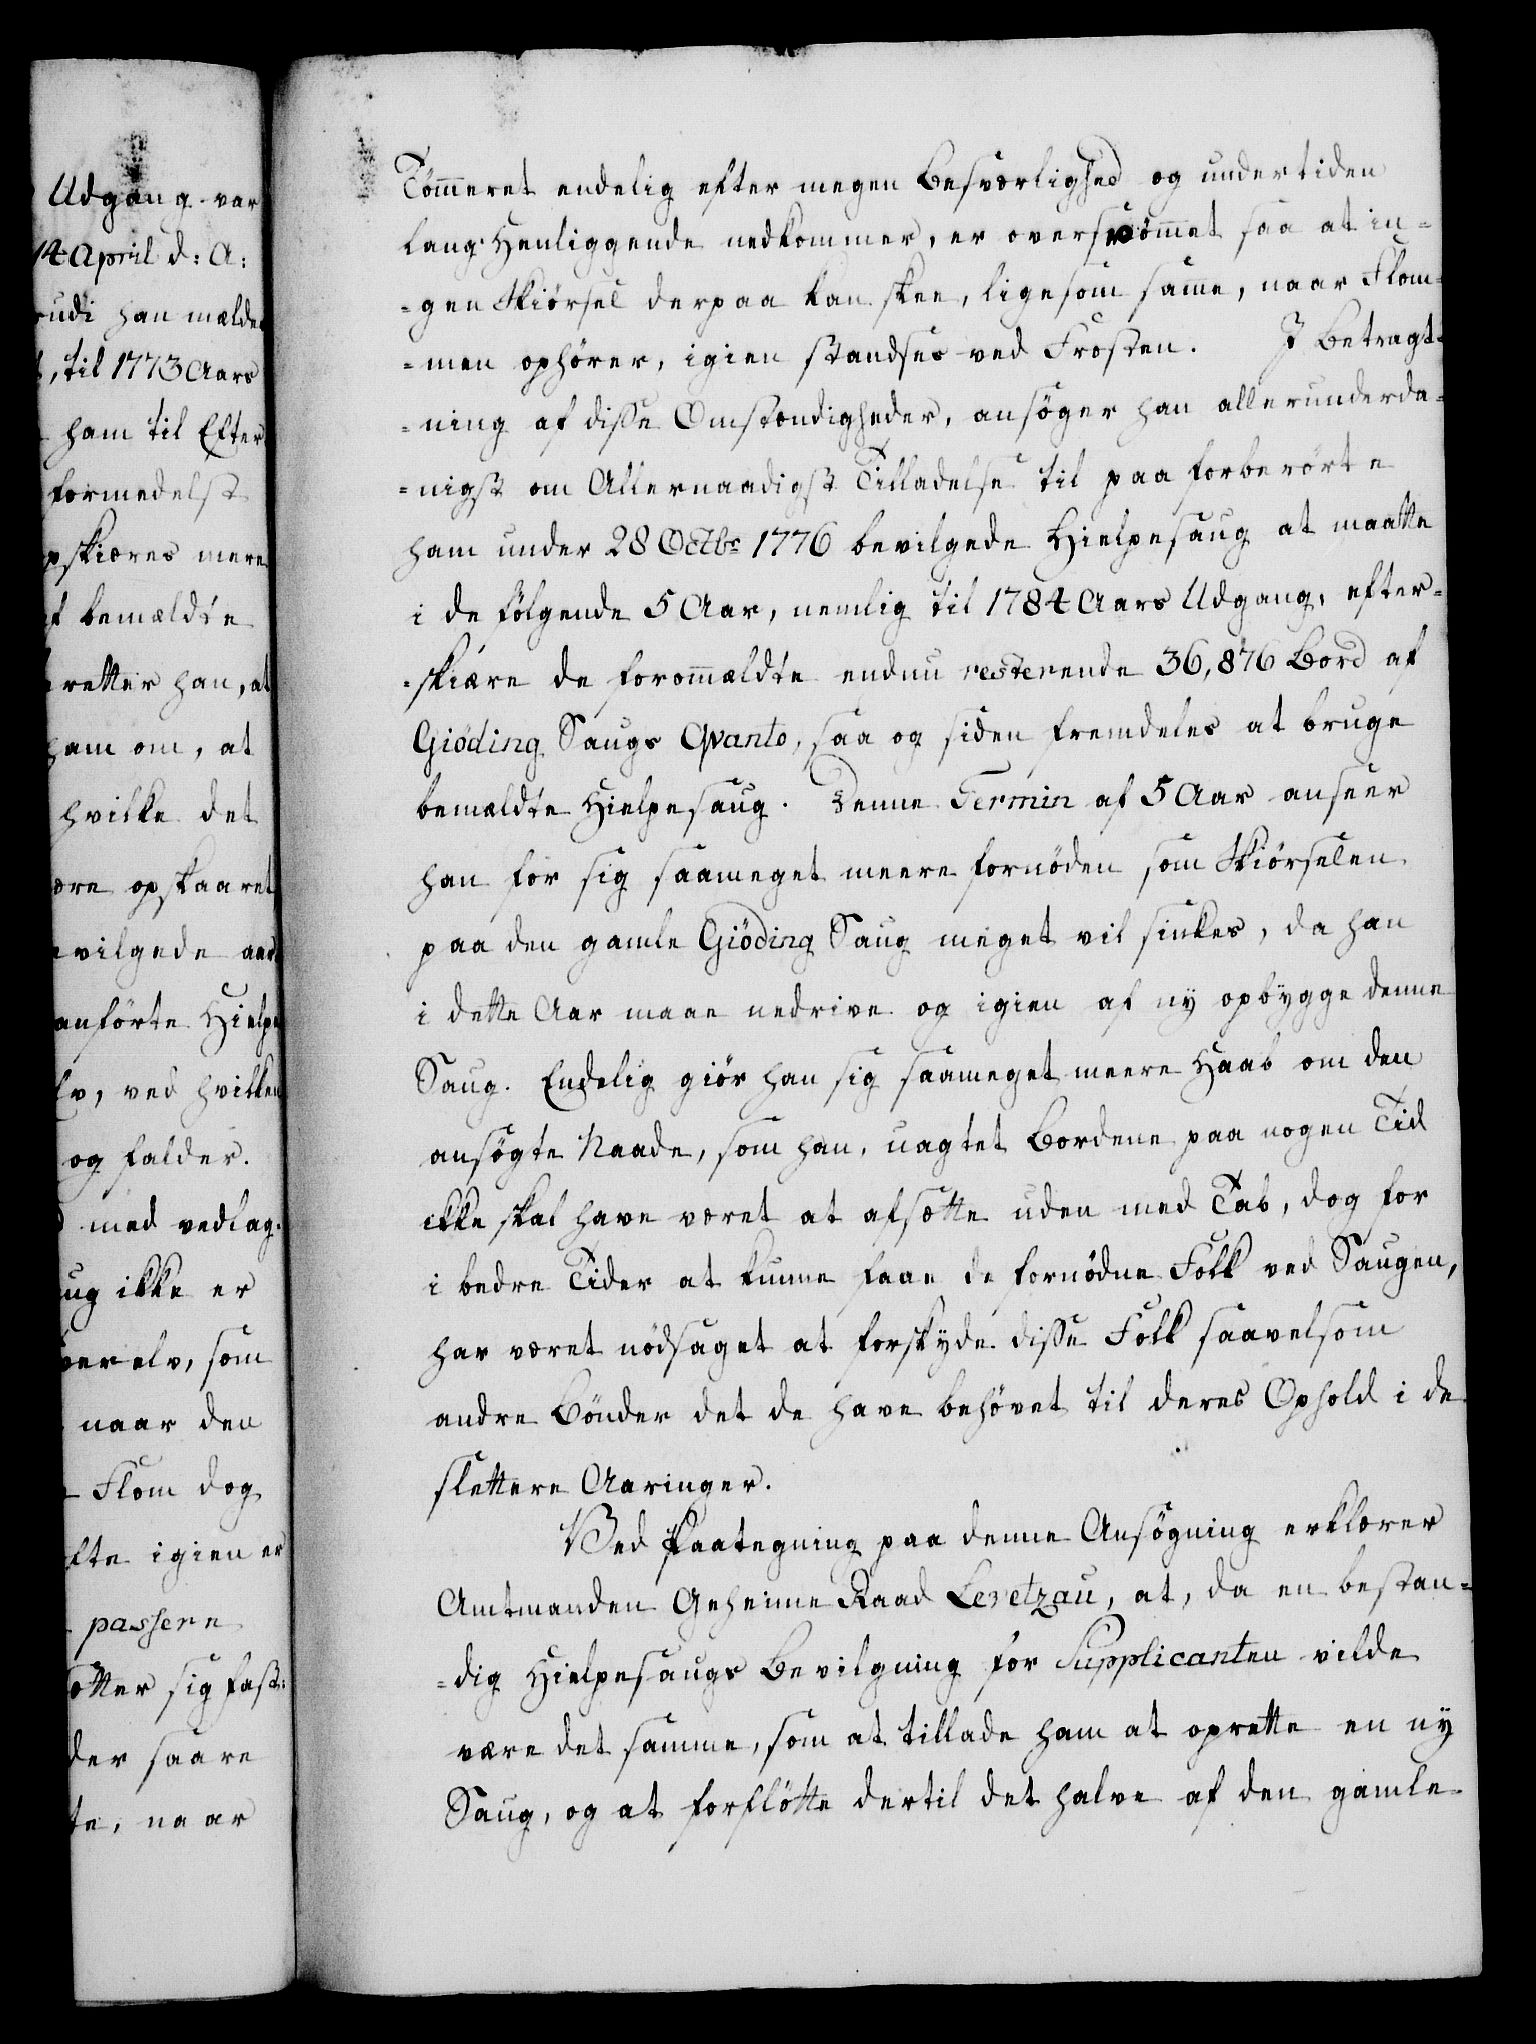 Udgang var
14 April d: A:
han mælde
, til 1773 Aars
ham til Efter
formedelst
pskieres mere
bemældte
retter han, at
ham om, at
hvilke det
ære opskaaret
evilgede
anførte Hielpe
lv, ved hvilken
og falder.
med vedlag
ug ikke er
verelv, som
naar den
Flom dog
fte igien er
passere
ætter sig fast:
der saare
te, naar
Tömmeret endelig efter megen Besværlighed og undertiden
lang Henliggende nedkommer, er oversvömmet saa at in=
=gen Skiörsel derpaa kan skee, ligesom samme, naar Flom=
=men ophörer, igien standses ved Frosten. I Betragt=
=ning af disse Omstændigheder, ansöger han allerunderda=
=nigst om Allernaadigst Tilladelse til paa forberörte
ham under 28 Octbr 1776 bevilgede Hielpesaug at maatte
i de fölgende 5 Aar, nemlig til 1784 Aars Udgang, efter=
=skiære de forommældte endnu resterende 36,876 Bord af
Giöding Saugs Qvanto, saa og siden fremdeles at bruge
bemældte Hielpesaug. Denne Termin af 5 Aar anseer
han for sig saameget meere fornöden som Skiörselen
paa den gamle Giöding Saug meget vil sinkes, da han
i dette Aar maae nedrive og igien af ny opbygge denne
Saug. Endelig giör han sig saameget meere Haab om den
ansögte Naade, som han, uagtet Bordene paa nogen Tid
ikke skal have været at afsætte uden med Tab, dog for
i bedre Tider at kunne faae de fornödne Folk ved Saugen,
har været nödsaget at forskyde disse Folk saavelsom
andre Bönder det de have behövet til deres Ophold i de
slettere Aaringer.
Ved Paategning paa denne Ansögning erklærer
Amtmanden Geheime Raad Levetzau, at, da en bestan=
=dig Hielpesaugs Bevilgning for Supplicanten vilde
være det samme, som at tillade ham at oprette en ny
Saug, og at forflötte dertil det halve af den gamle